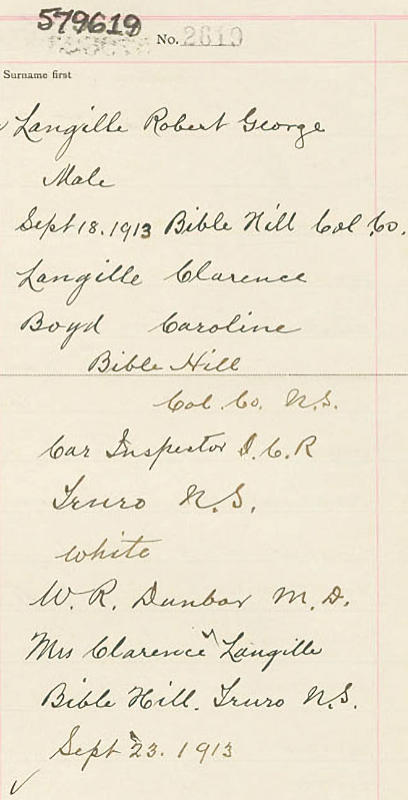 579619
No. 2619
Surname first
Langille Robert George
Male
Sept 18. 1913 Bible Hill Col Co.
Langille Clarence
Boyd Caroline
Bible Hill
Col. Co. N.S.
Car Inspector I.C.R
Truro N.S.
White
W. R. Dunbar M.D.
Mrs Clarence Langille
Bible Hill. Truro N.S.
Sept 23. 1913